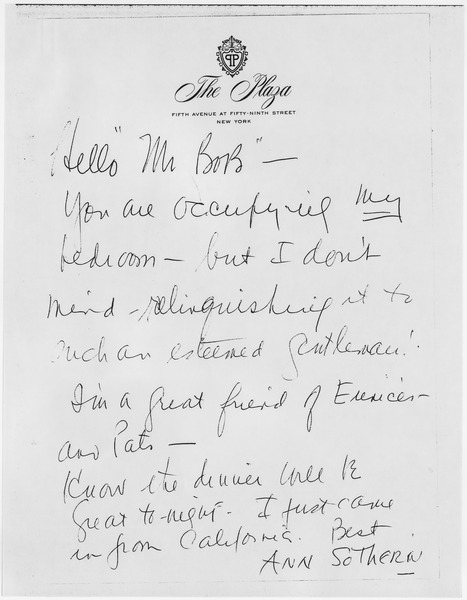 PP
The Plaza
FIFTH AVENUE AT FIFTY-NINTH STREET
NEW YORK
Hello "Mr BoB" —
You are occupying my
bedroom — but I don't
mind - relinquishing it to
such an esteemed gentleman!
I'm a great friend of Eunices —
and Pats —
Know the dinner will be
great to-night - I just came
in from California. Best
ANN SOTHERN